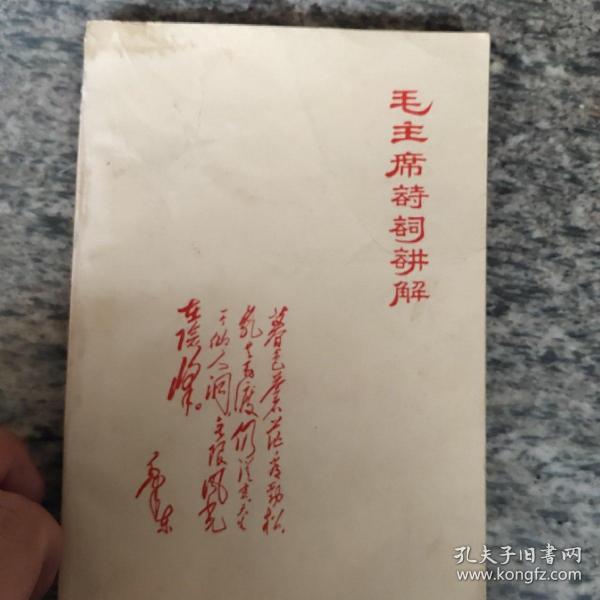 毛主席詩詞講解
暮色蒼茫看勁松
亂雲飛渡仍從容天生
一個仙人洞無限風光
在險峰。
毛澤東
孔夫子旧书网
www.kongfz.com